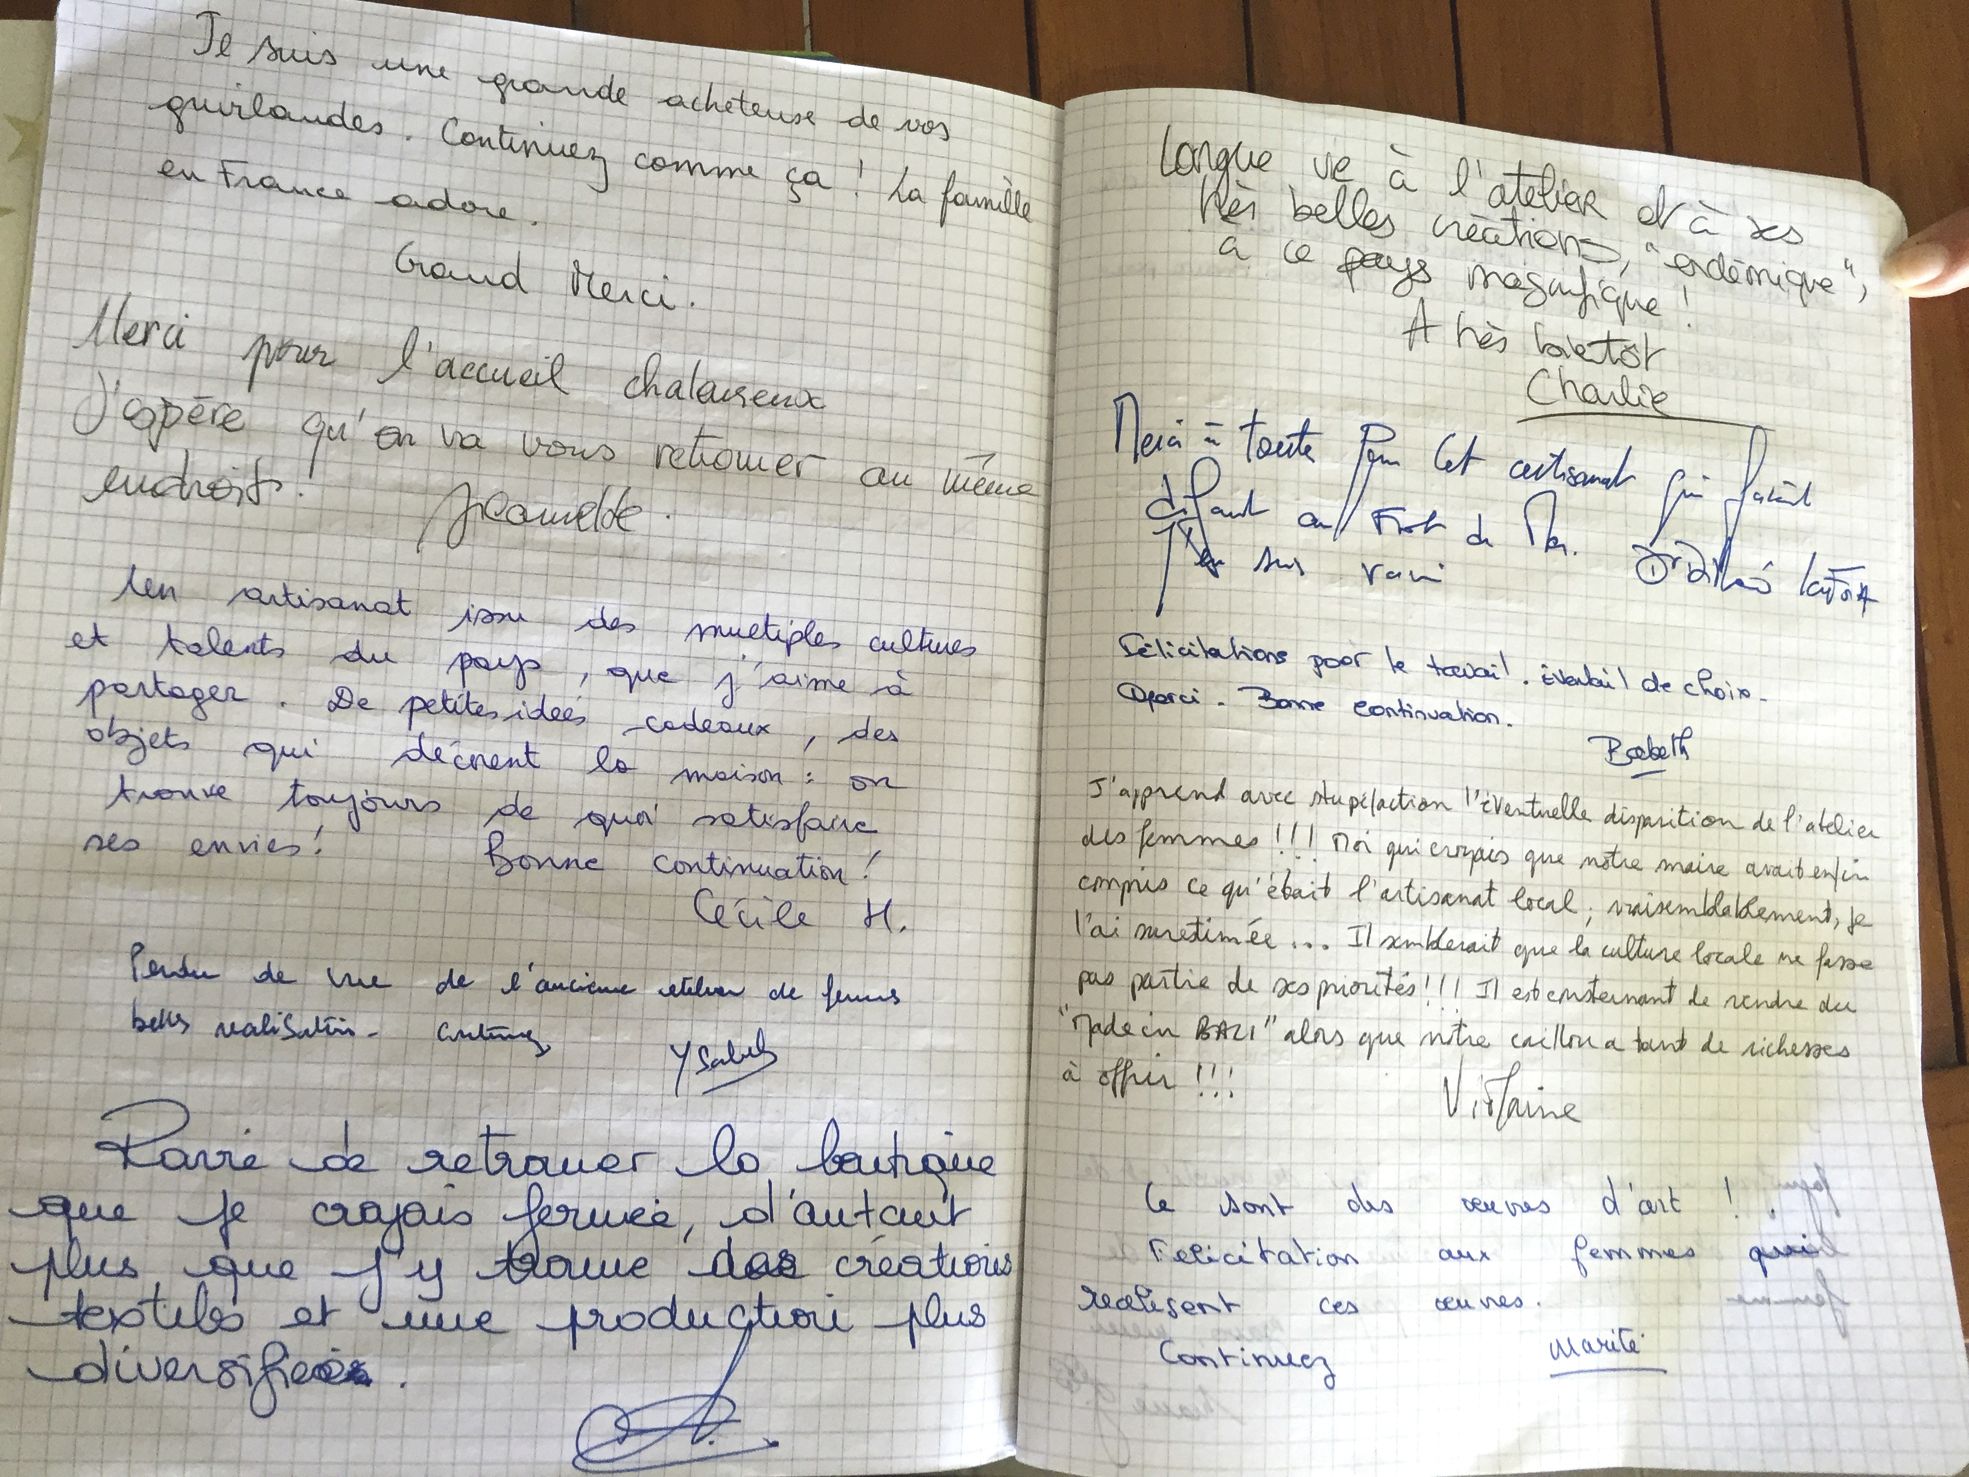 Je suis une grande acheteuse de vos
guirlandes. Continuez comme ça ! La famille
en France adore.
Grand Merci.
Merci pour l'accueil chaleureux
J'espère qu'on va vous retrouver au même
endroit !
Un artisanat issu des multiples cultures
et talents du pays, que j'aime à
partager. De petites idées cadeaux, des
objets qui décorent la maison : on
trouve toujours de quoi satisfaire
ses envies ! Bonne continuation !
Cécile H.
Perdu de vue de l'ancienne atelier de femmes
belles realisations. Continuez
Ysabel
Ravie de retrouver la boutique
que je croyais fermée, d'autant
plus que j'y trouve des créations
textiles et une production plus
diversifiée.
Longue vie à l'atelier et à ses
très belles créations, "endémique",
à ce pays magnifique !
A très bientôt
Charlie
Merci à toute pour cet artisanat qui faisait
défaut au Front de Mer.
J'en suis ravi
Félicitations pour le travail. éventail de choix.
Merci. Bonne continuation.
Babeth
J'apprend avec stupéfaction l'éventuelle disparition de l'atelier
des femmes !!! Moi qui croyais que notre maire avait enfin
compris ce qu'était l'artisanat local ; vraisemblablement, je
l'ai surestimée ... Il semblerait que la culture locale ne fasse
pas partie de ses priorités !!! Il est consternant de vendre du
"Made in BALI" alors que notre caillou a tant de richesses
à offrir !!!
Violaine
Ce sont des œuvres d'art !
Felicitation aux femmes qui
realisent ces œuvres.
Continuez Marité